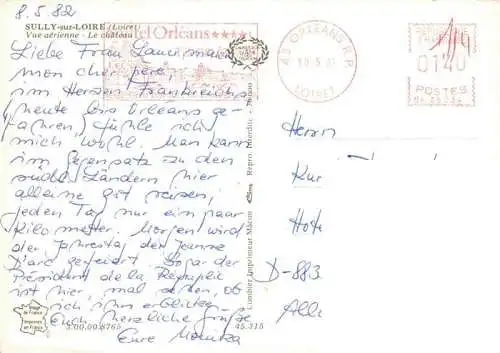 8.5.82
SULLY-sur-LOIRE (Loiret)
Vue aérienne - Le château
Hotel Orléans ****
45 ORLEANS R.P.
LOIRET
0140
POSTES
Liebe Frau
mon cher père,
im Herzen Frankreichs
(heute bis Orleans ge-
fahren) fühle ich
mich wohl. Man kann
im Gegensatz zu den
südl. Ländern hier
alleine gut reisen,
jeden Tag nur ein paar
Kilometer. Morgen wird
der Jahrestag der Jeanne
D'arc gefeiert. Sogar der
Président de la République
ist hier, mal sehen, ob
ich ihn erblicke.
Euch herzliche Grüße
Eure
Herrn
Kur
Hote
D-883
Combier Imprimeur Mâcon
Repro. Interdite
Image de France
Imprimée en France
5.00.00.8765
45.315